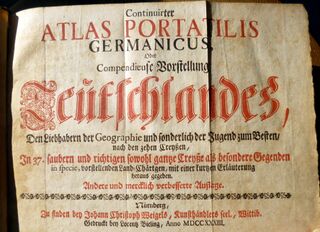 Continuirter
ATLAS PORTATILIS
GERMANICUS,
Oder
Compendieuse Vorstellung
Teutschlandes,
Den Liebhabern der Geographie und sonderlich der Jugend zum Besten,
nach den zehen Creyßen,
In 37. saubern und richtigen sowohl gantze Creyße als besondere Gegenden
in specie, vorstellenden Land-Chärtgen, mit einer kurtzen Erläuterung
heraus gegeben.
Andere und mercklich verbesserte Auflage.
Nürnberg,
Zu finden bey Johann Christoph Weigels, Kunsthändlers seel. Wittib.
Gedruckt bey Lorentz Bieling, Anno MDCCXXXIII.